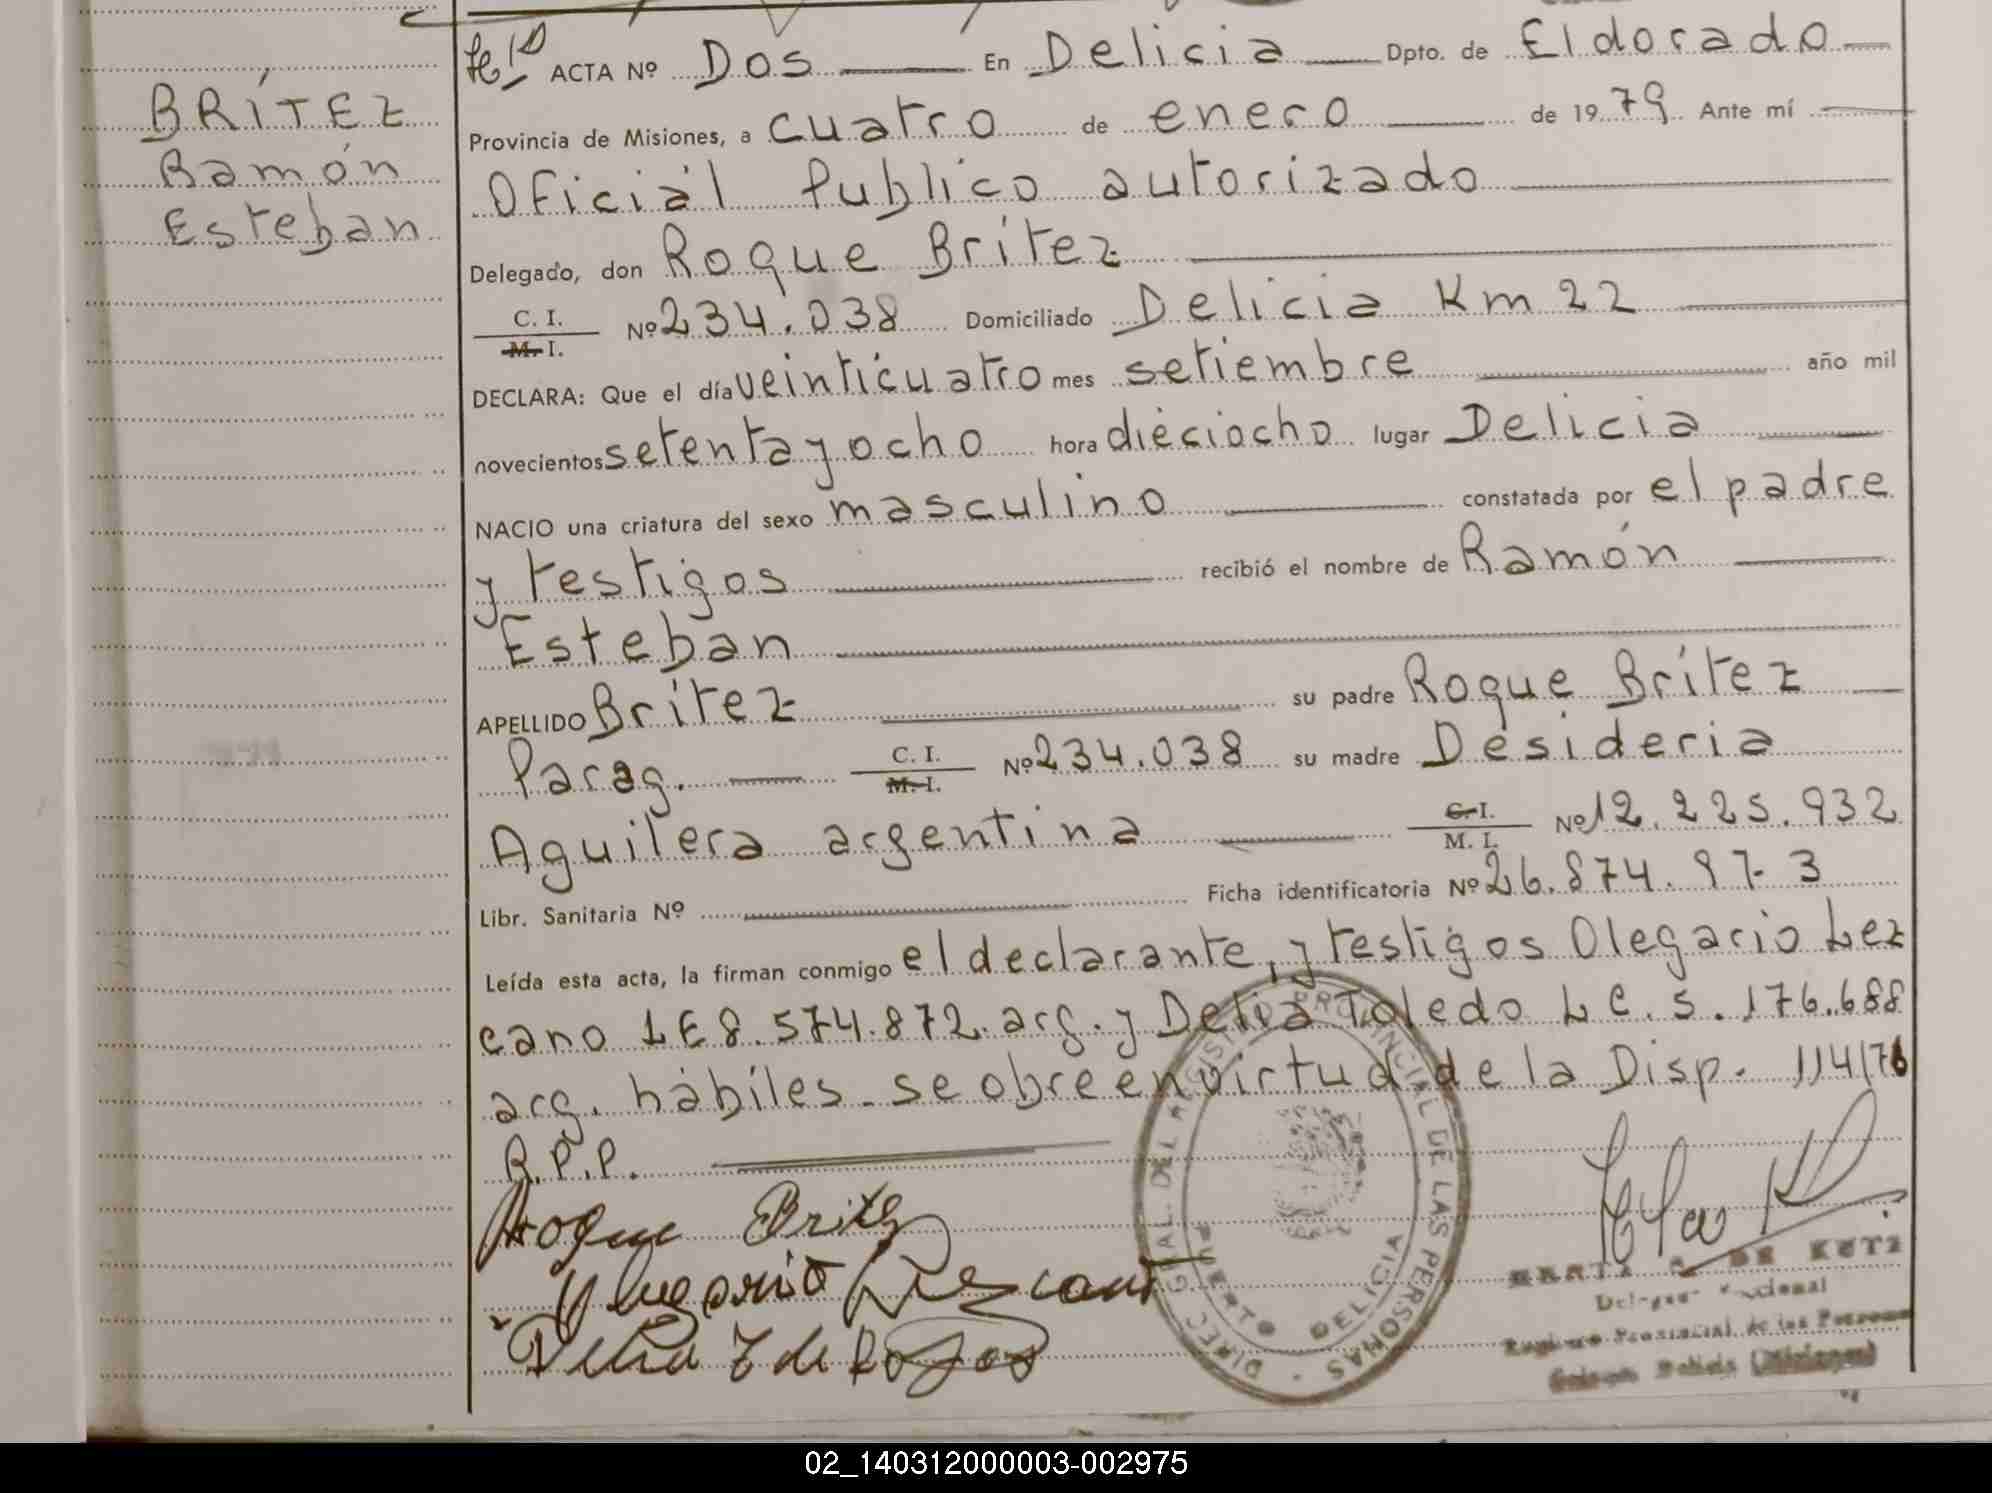 BRÍTEZ
Ramón
Esteban
ACTA Nº Dos En Delicia Dpto. de Eldorado
Provincia de Misiones, a cuatro de enero de 1979 Ante mí
Oficial Publico autorizado
Delegado, don Roque Brítez
C. I.
M. I. Nº 234.038 Domiciliado Delicia Km 22
DECLARA: Que el día veinticuatro mes setiembre año mil
novecientos setenta y ocho hora dieciocho lugar Delicia
NACIO una criatura del sexo masculino constatada por el padre
y testigos recibió el nombre de Ramón
Esteban
APELLIDO Brítez su padre Roque Brítez
Parag. C. I. M. I. Nº 234.038 su madre Desideria
Aguilera argentina C. I. M. I. Nº 12.225.932
Libr. Sanitaria Nº Ficha identificatoria Nº 26.874.97-3
Leída esta acta, la firman conmigo el declarante, y testigos Olegario Lez
cano LE 8.574.872. arg. y Delia Toledo L C. 5.176.688
arg. hábiles. se obre en virtud de la Disp. 114/76
R.P.P.
Roque Britez
Olegario Lezcano
Delia T de Rojas
DIREC. GRAL. DEL REGISTRO PROVINCIAL DE LAS PERSONAS
PUERTO DELICIA
DE KUTZ
Registro Provincial de las Personas
02_140312000003-002975